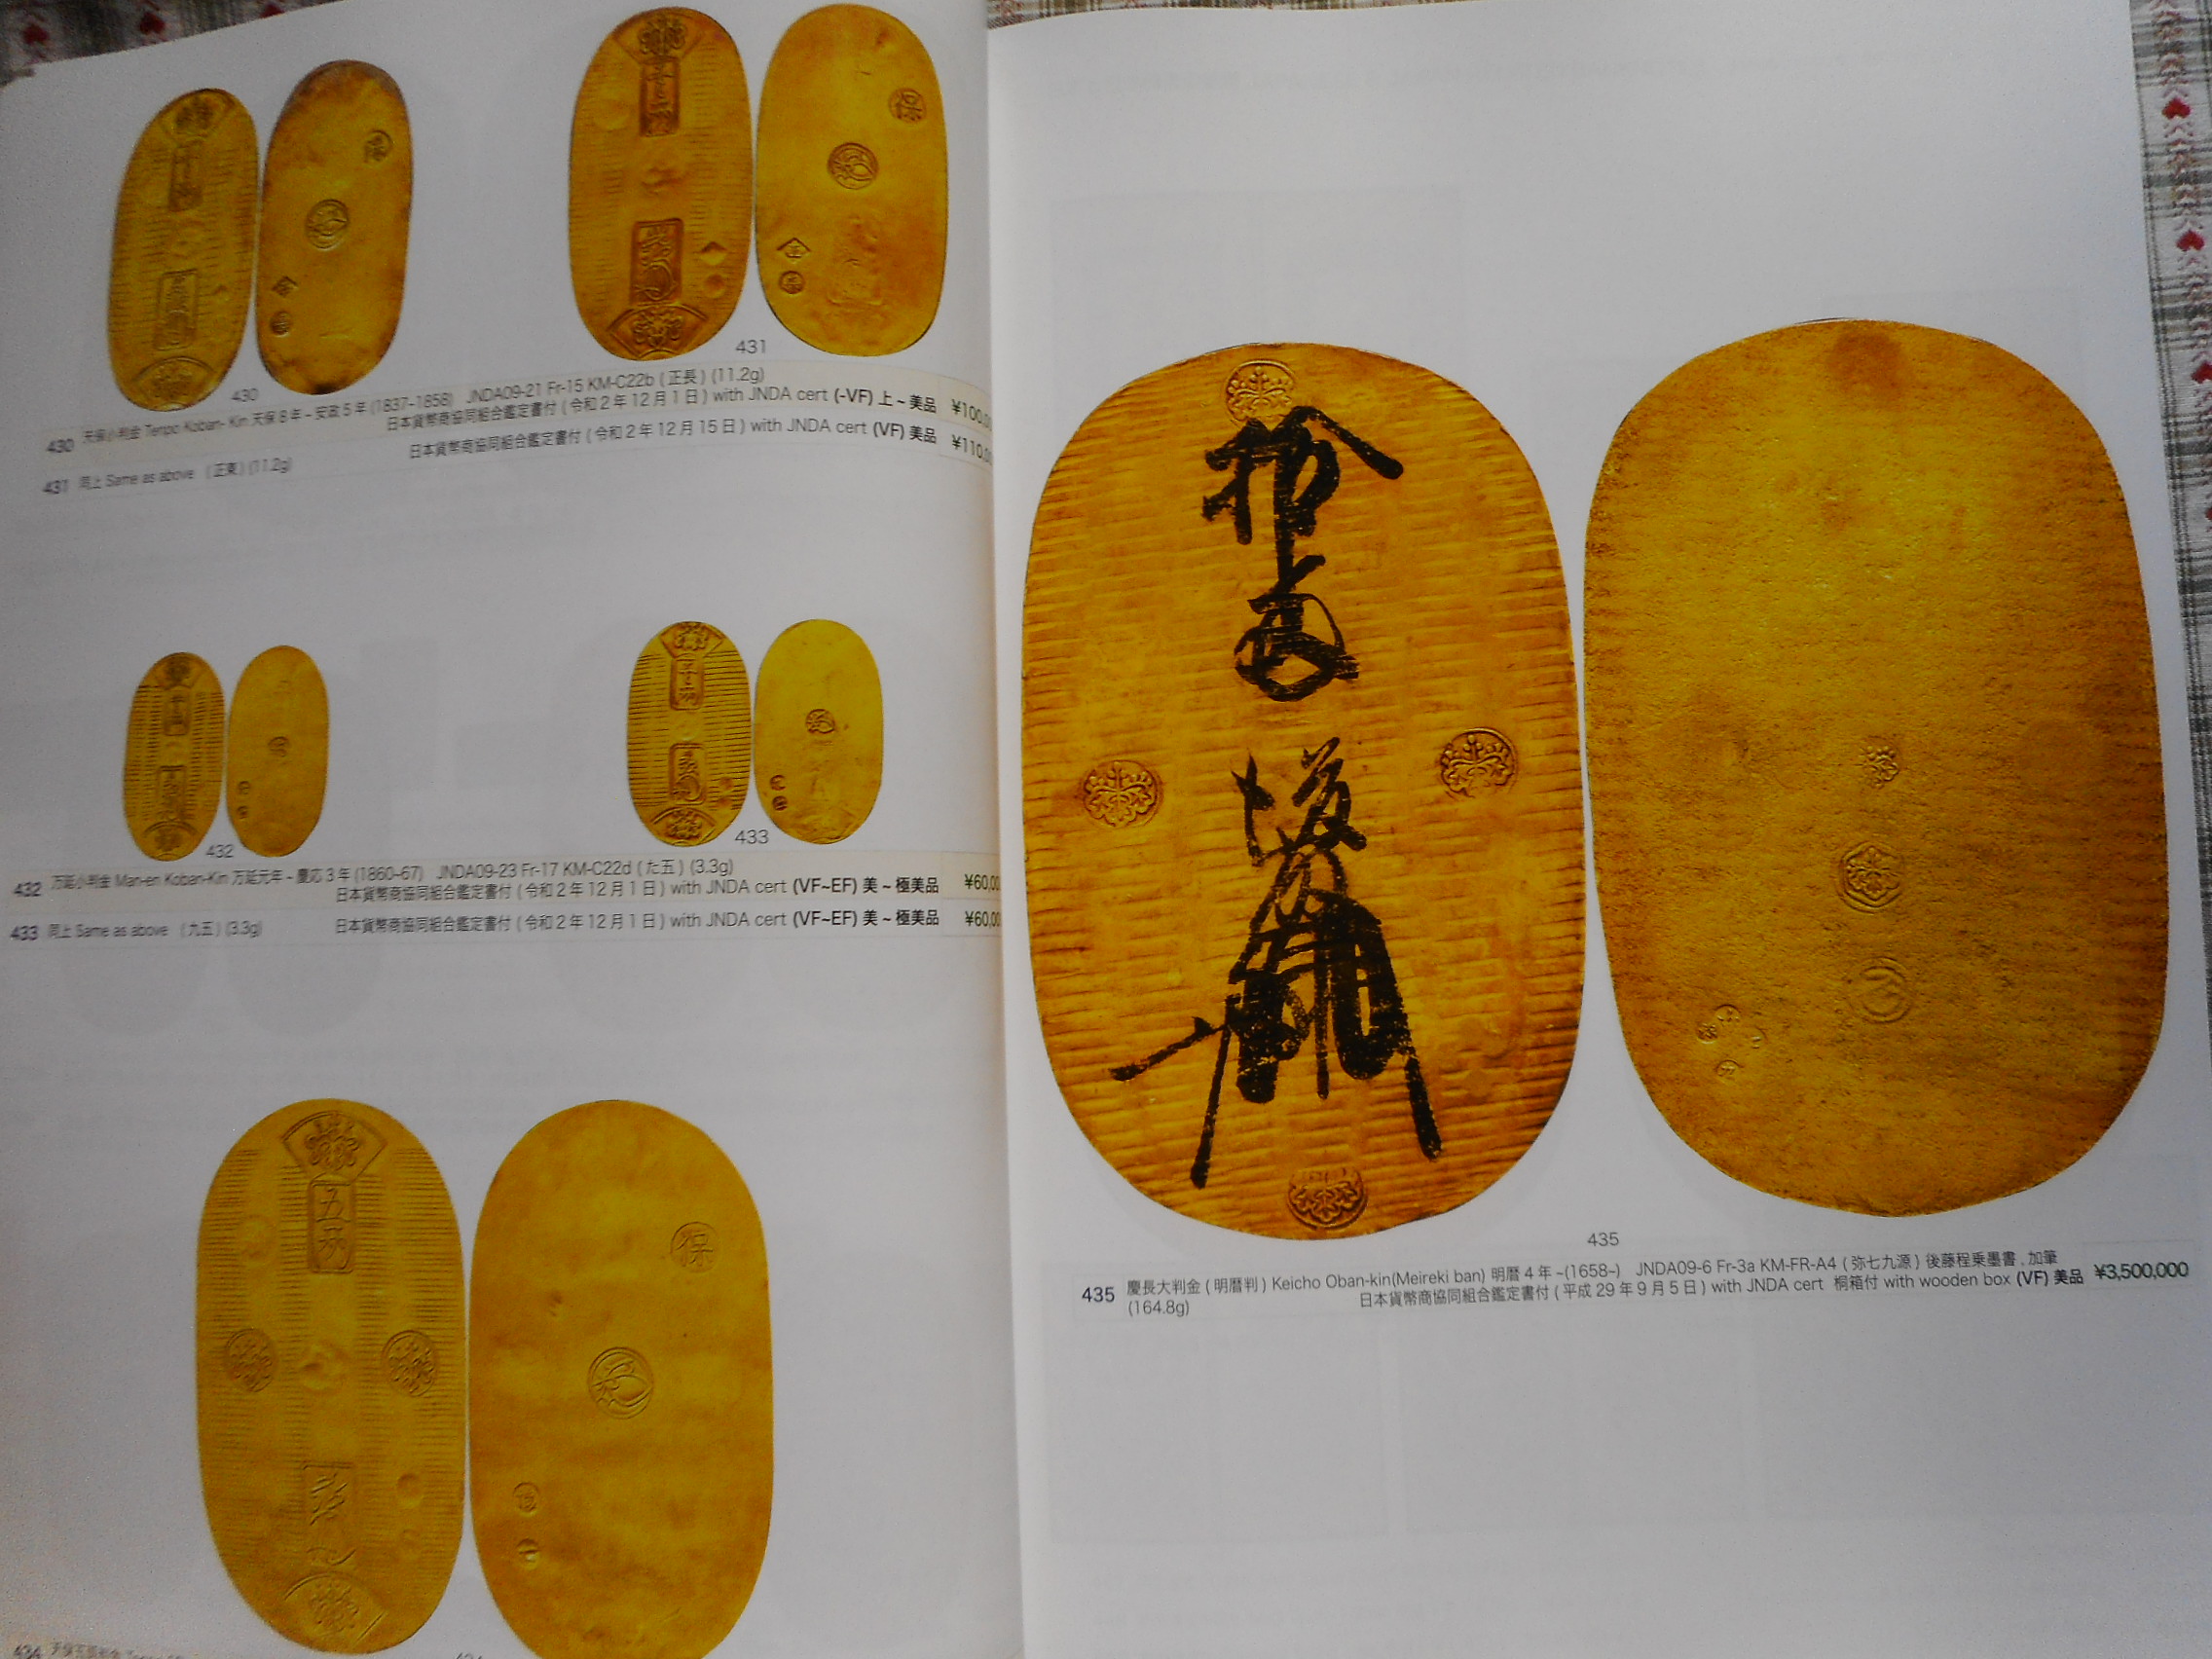 430
431
430 天保小判金 Tenpo Koban- Kin 天保8年~安政5年(1837-1858) JNDA09-21 Fr-15 KM-C22b (正長) (11.2g)
日本貨幣商協同組合鑑定書付(令和2年12月1日) with JNDA cert (-VF) 上~美品 ¥100,
431 同上 Same as above (正東) (11.2g) 日本貨幣商協同組合鑑定書付(令和2年12月15日) with JNDA cert (VF) 美品 ¥110,
432
433
432 万延小判金 Man-en Koban-Kin 万延元年~慶応3年(1860-67) JNDA09-23 Fr-17 KM-C22d (た五) (3.3g)
日本貨幣商協同組合鑑定書付(令和2年12月1日) with JNDA cert (VF~EF) 美~極美品 ¥60,00
433 同上 Same as above (九五) (3.3g) 日本貨幣商協同組合鑑定書付(令和2年12月1日) with JNDA cert (VF~EF) 美~極美品 ¥60,00
五両
保
434
435
435 慶長大判金(明暦判) Keicho Oban-kin(Meireki ban) 明暦4年~(1658~) JNDA09-6 Fr-3a KM-FR-A4 (弥七九源) 後藤程乗墨書,加筆
(164.8g) 日本貨幣商協同組合鑑定書付(平成29年9月5日) with JNDA cert 桐箱付 with wooden box (VF) 美品 ¥3,500,000